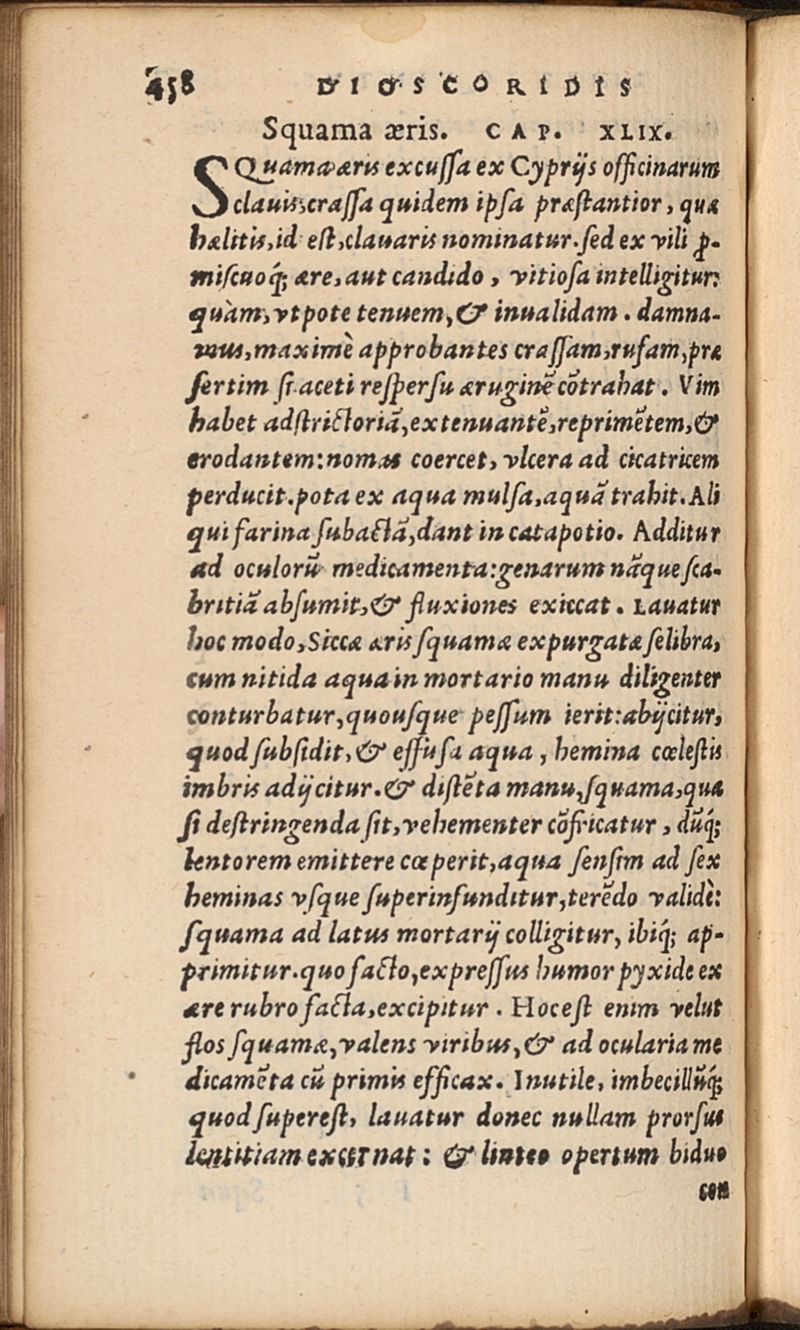 458 DIOSCORIDIS
Squama æris. CAP. XLIX.
SQuama æris excussa ex Cyprijs officinarum
clauis, crassa quidem ipsa præstantior, quæ
hælitis, id est, clauaris nominatur. sed ex vili p̱-
miscuoq́; ære, aut candido, vitiosa intelligitur:
quàm, vtpote tenuem, & inualidam. damna-
mus, maximè approbantes crassam, rufam, præ
sertim si aceti respersu æruginē cōtrahat. Vim
habet adstrictoriā, extenuantē, reprimētem, &
erodantem: nomas coercet, vlcera ad cicatricem
perducit. pota ex aqua mulsa, aquā trahit. Ali
qui farina subactā, dant in catapotio. Additur
ad oculorū medicamenta: genarum nāque sca-
britiā absumit, & fluxiones exiccat. Lauatur
hoc modo, Siccæ æris squamæ expurgatæ selibra,
cum nitida aqua in mortario manu diligenter
conturbatur, quousque pessum ierit: abijcitur,
quod subsidit, & effusa aqua, hemina cœlestis
imbris adijcitur. & distēta manu, squama, qua
si destringenda sit, vehementer cōfricatur, dūq́;
lentorem emittere cœperit, aqua sensim ad sex
heminas vsque superinfunditur, terēdo validè:
squama ad latus mortarij colligitur, ibiq́; ap-
primitur. quo facto, expressus humor pyxide ex
ære rubro facta, excipitur. Hoc est enim velut
flos squamæ, valens viribus, & ad ocularia me
dicamēta cū primis efficax. Inutile, imbecillūq́;
quod superest, lauatur donec nullam prorsus
lentitiam excernat: & linteo opertum biduo
con